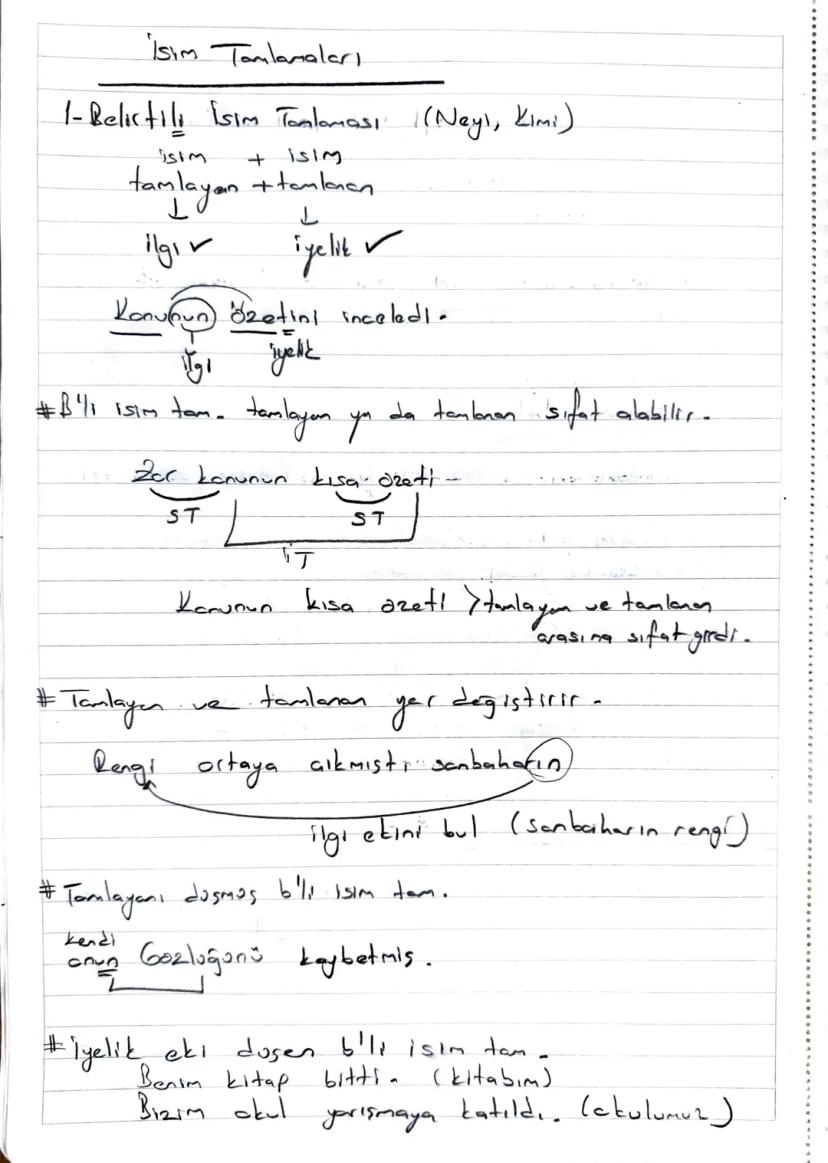 İsim Tamlamaları
1-Belirtili İsim Tamlaması (Neyi, Kimi)
isim + isim
tamlayan + tamlanan
↓ ↓
ilgi ✓ iyelik ✓
Konunun özetini inceledi.
ilgi iyelik
# B'li isim tam. tamlayan ya da tamlanan sıfat alabilir.
Zor konunun kısa özeti -
ST ST
İT
Konunun kısa özeti > tamlayan ve tamlanan
arasına sıfat girdi.
# Tamlayan ve tamlanan yer değiştirir.
Rengi ortaya çıkmıştı sonbaharın
ilgi ekini bul (sonbaharın rengi)
# Tamlayanı düşmüş b'li isim tam.
kendi
onun Gözlüğünü kaybetmiş.
# İyelik eki düşen b'li isim tam.
Benim kitap bitti. (kitabım)
Bizim okul yarışmaya katıldı. (okulumuz)